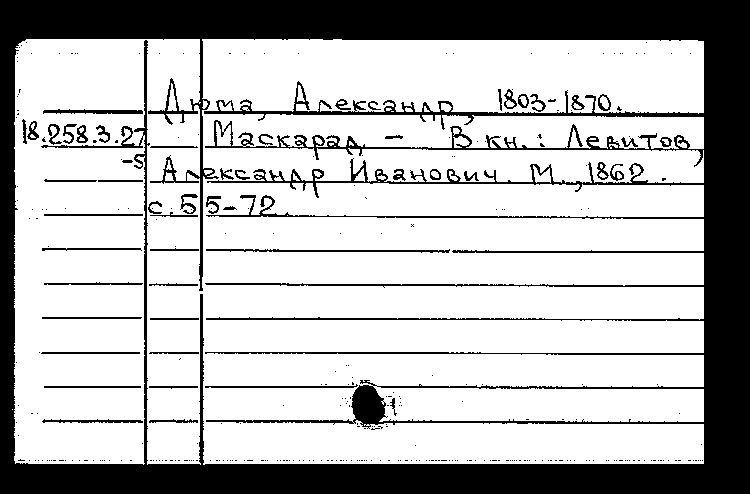 Дюма, Александр, 1803-1870.
18.258.3.27 Маскарад - В кн.: Левитов,
-5 Александр Иванович. М., 1862.
с. 55-72.